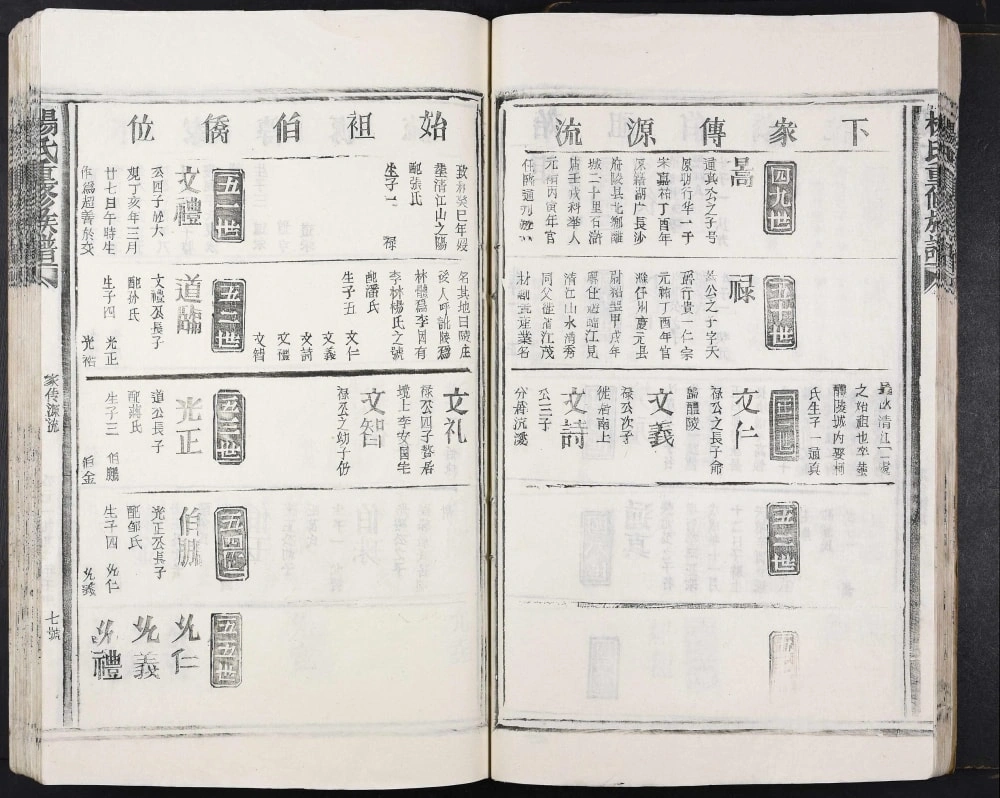 下家傳源流
四九世
暠
通真公之子号
原明行华一于
宋嘉祐丁酉年
原籍湖广長沙
府陵县北鄉離
城二十里石滸
唐壬戌科举人
元祐丙寅年官
五十世
祿
公之子字天
爵行貴一仁宗
元祐丁酉年官
滁任州慶元县
尉紹聖甲戌年
清江山水清秀
同父徙居江茂
之始祖也卒塟
醴陵城内娶柯
氏生子一通真
文仁
祿公之長子命
歸醴陵
文義
祿公次子
徙居南上
文詩
公三子
分居沅溪
五二世
始祖伯僑位
政和癸巳年嫂
塟清江山之陽
配張氏
生子一 禄
名其地曰陵庄
後人呼訛陵爲
林體爲李固有
李林楊氏之號
配潘氏
生子五 文仁
文義
文詩
文禮
文智
文礼
禄公四子贅居
境上李安国宅
文智
禄公之幼子仍
五一世
文禮
公四子娩大
观丁亥年三月
廿七日午時生
作爲超善於交
五二世
道臨
文禮公長子
配孫氏
生子四 光正
光裕
五三世
光正
道公長子
配蔣氏
生子三 伯鵬
伯金
五四世
伯鵬
光正公長子
配邹氏
生子四 允仁
允義
五五世
允仁
允義
允禮
楊氏重修族譜
家传源流
七號